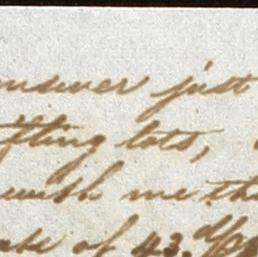 answer just
fting lots,
wish me tha
ate of 43.